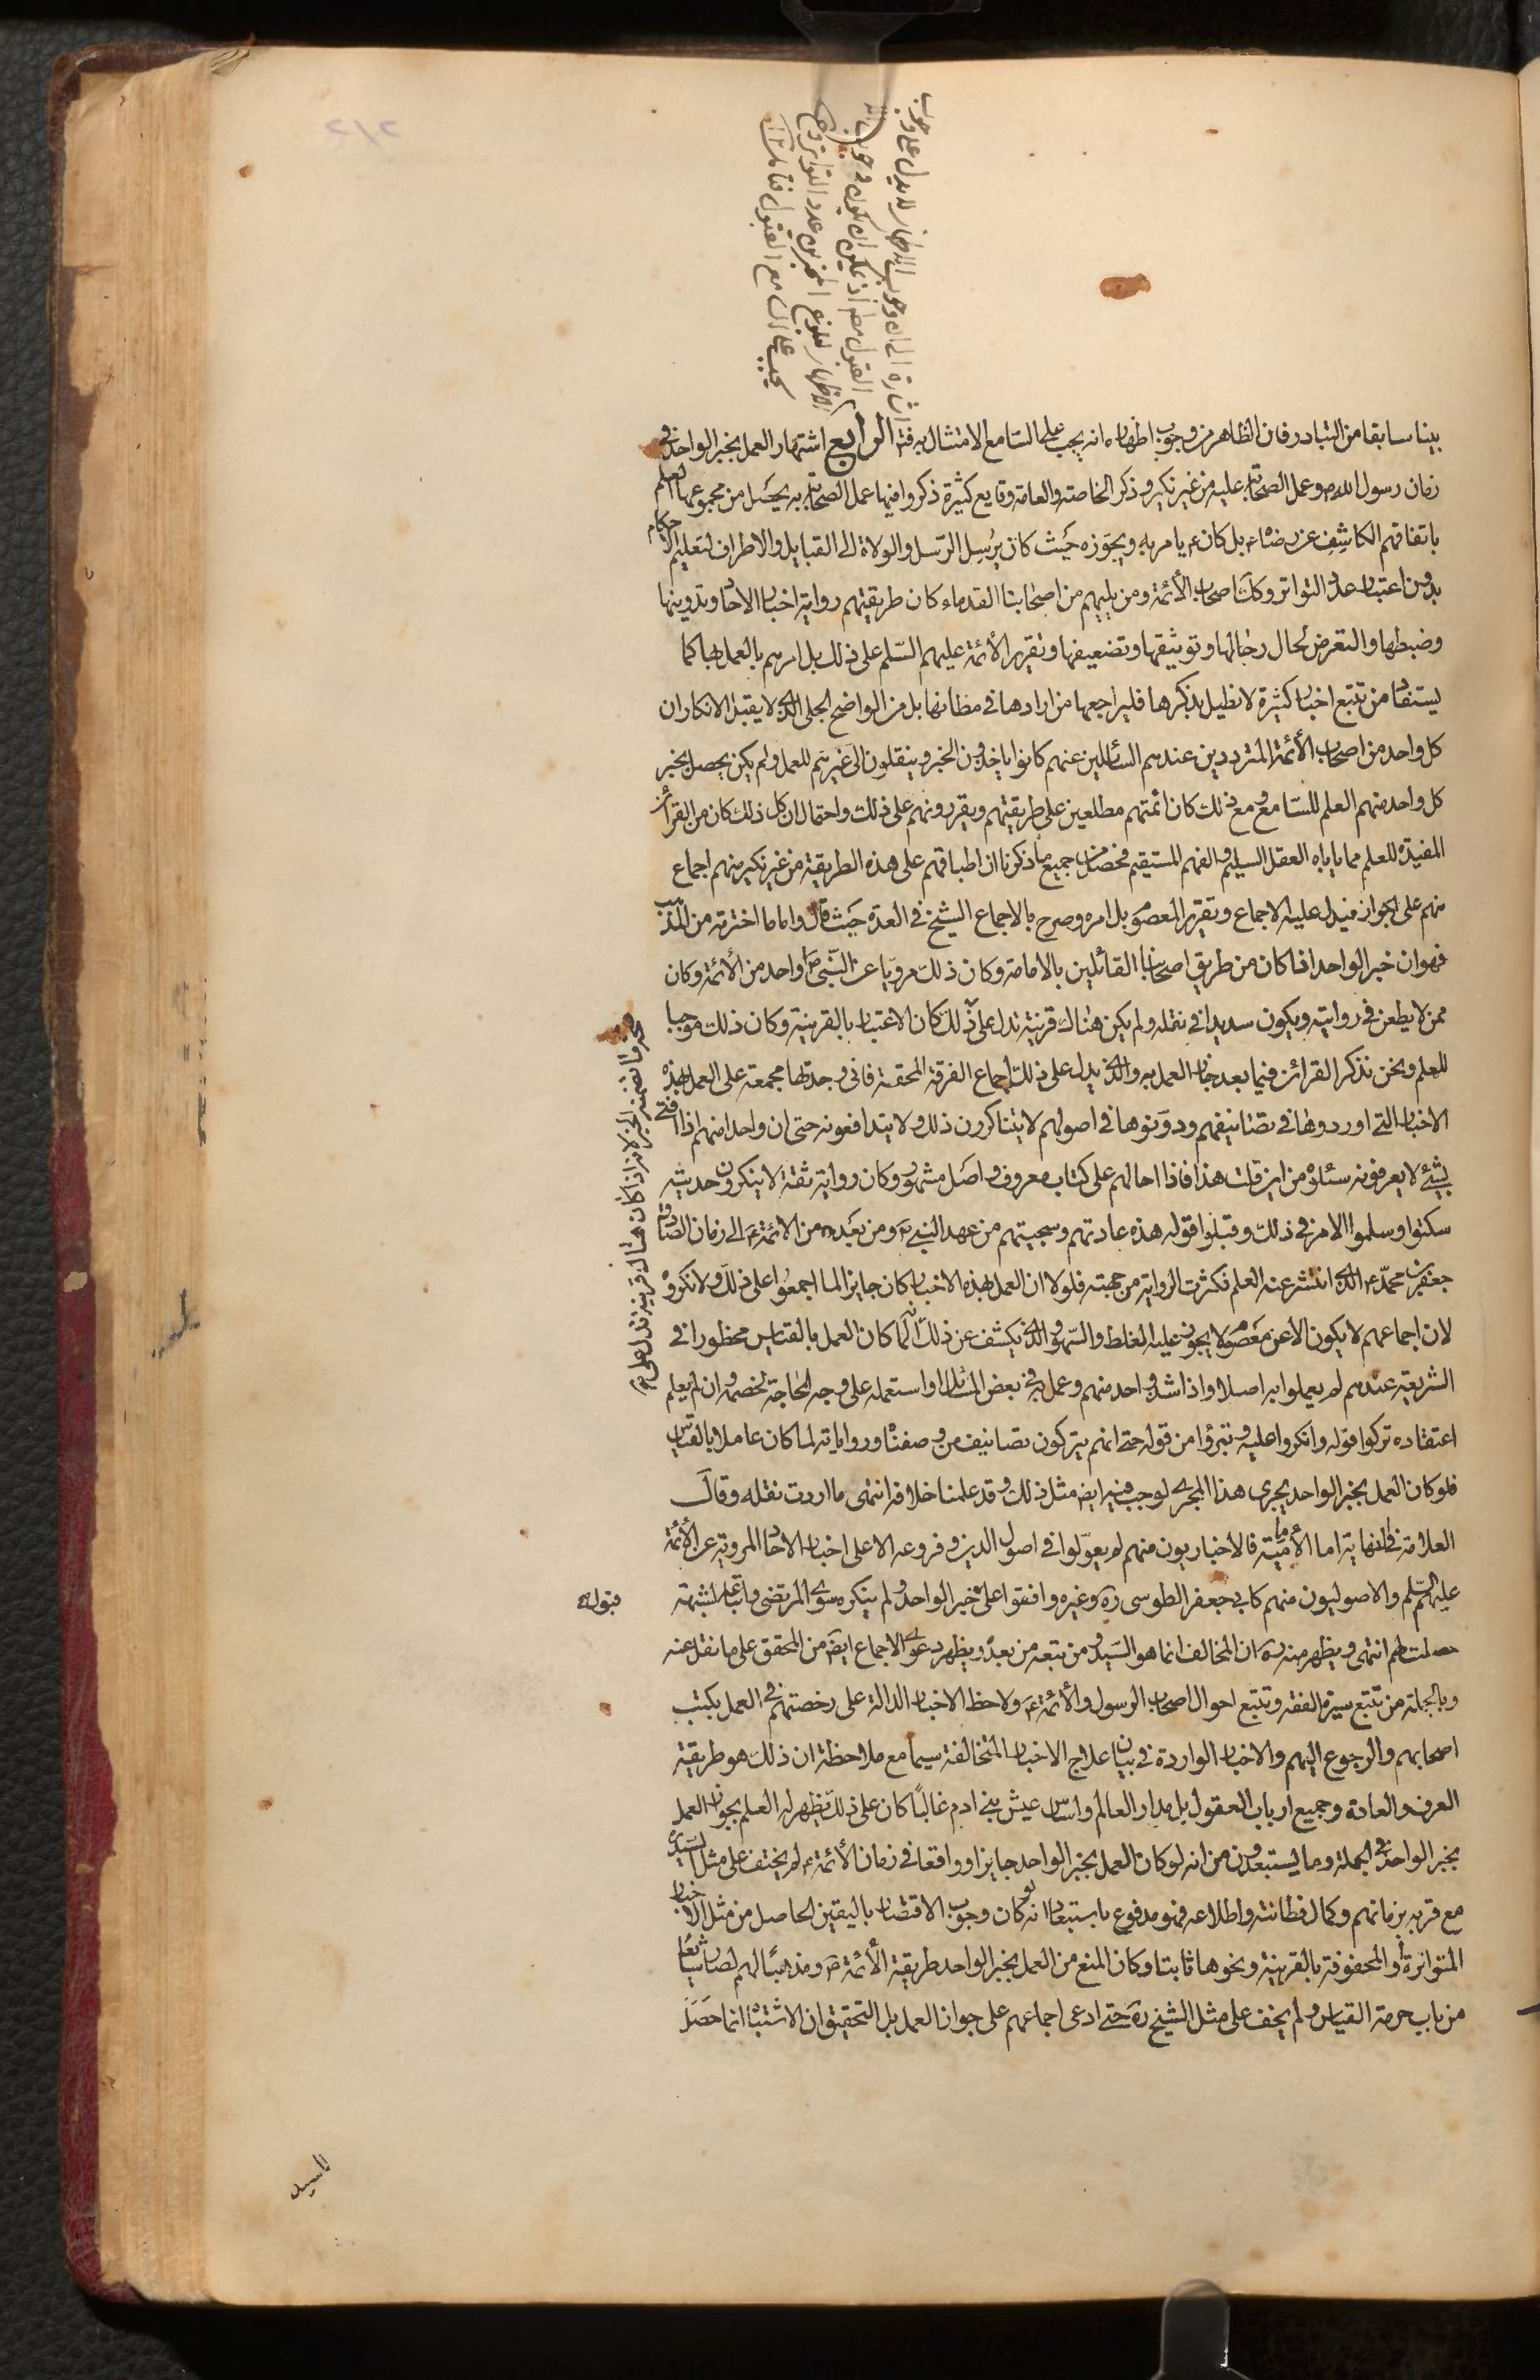 اشارة الى ان وجوب الاظهار لا يدل على وجوب
القبول مط اذ يمكن ان يكون وجوب
الاظهار ليبلغ المخبرين عدد التواتر وح
يجب على السامع القبول فتامل
بينا سابقا من التبادر فان الظاهر من وجوب اظهاره انه يجب على السامع الامتثال به فتم الرابع اشتهار العمل بخبر الواحد في
زمان رسول الله ص وعمل الصحابة عليه من غير نكير وذكر الخاصة والعامة وقايع كثيرة ذكروا فيها عمل الصحابة به يحصل من مجموعها العلم
باتفاقهم الكاشف عن رضاه ع بل كان ع يامر به ويجوزه حيث كان يرسل الرسل والولاة الى القبايل والاطراف لتعليم الاحكام
بدون اعتبار عدد التواتر وكذا اصحاب الأئمة ومن يليهم من اصحابنا القدماء كان طريقتهم رواية اخبار الاحاد وتدوينها
وضبطها والتعرض لحال رجالها وتوثيقها وتضعيفها وتقرير الأئمة عليهم السلم على ذلك بل امرهم بالعمل بها كما
يستفاد من تتبع اخبار كثيرة لا نطيل بذكرها فليراجعها من ارادها في مظانها بل من الواضح الجلى الذي لا يقبل الانكار ان
كل واحد من اصحاب الأئمة المترددين عندهم السائلين عنهم كانوا ياخذون الخبر وينقلون الى غيرهم للعمل ولم يكن يحصل بخبر
كل واحد منهم العلم للسامع ومع ذلك كان ائمتهم مطلعين على طريقتهم ويقررونهم على ذلك واحتمال ان كل ذلك كان من القرائن
المفيدة للعلم مما ياباه العقل السليم والفهم المستقيم فحصل من جميع ما ذكرنا ان اطباقهم على هذه الطريقة من غير نكير منهم اجماع
منهم على الجواز فيدل عليه الاجماع وتقرير المعصوم بل امره وصرح بالاجماع الشيخ في العدة حيث قال واما ما اخترته من المذهب
فهو ان خبر الواحد اذا كان من طريق اصحابنا القائلين بالامامة وكان ذلك مرويا عن النبى ص او واحد من الأئمة وكان
ممن لا يطعن في روايته ويكون سديدا في نقله ولم يكن هناك قرينة تدل على
صحة ما تضمنه الخبر لانه اذا كان هناك قرينة تدل على
ذلك كان الاعتبار بالقرينة وكان ذلك موجبا
للعلم ونحن نذكر القرائن فيما بعد جاز العمل به والذي يدل على ذلك اجماع الفرقة المحقة فانى وجدتها مجمعة على العمل بهذه
الاخبار التي اوردوها في تصانيفهم ودونوها في اصولهم لا يتناكرون ذلك ولا يتدافعونه حتى ان واحدا منهم اذا افتى
بشئ لا يعرفونه سئلوه من اين قلت هذا فاذا احالهم على كتاب معروف واصل مشهور وكان رواية ثقة لا ينكرون حديثه
سكتوا وسلموا الامر في ذلك وقبلوا قوله هذه عادتهم وسجيتهم من عهد النبى ص ومن بعده من الائمة ع الى زمان الصادق
جعفر بن محمد ع الذي انتشر عنه العلم فكثرت الرواية من جهته فلولا ان العمل بهذه الاخبار كان جايزا لما اجمعوا على ذلك ولانكروه
لان اجماعهم لا يكون الا عن معصوم لا يجوز عليه الغلط والسهو والذي يكشف عن ذلك انه لما كان العمل بالقياس محظورا في
الشريعة عندهم لم يعملوا به اصلا واذا شذ واحد منهم وعمل به في بعض المسائل او استعمله على وجه المحاجة لخصمه وان لم يعلم
اعتقاده تركوا قوله وانكروا عليه وتبرؤا من قوله حتى انهم يتركون تصانيف من وصفناه ورواياته لما كان عاملا بالقياس
فلو كان العمل بخبر الواحد يجرى هذا المجرى لوجب فيه ايض مثل ذلك وقد علمنا خلافه انتهى ما اردت نقله وقال
العلامة في النهاية اما الأمامية فالاخباريون منهم لم يعولوا في اصول الدين وفروعه الا على اخبار الاحاد المروية عن الأئمة
عليهم السلم والاصوليون منهم كابي جعفر الطوسى ره وغيره وافقوا على قبول خبر الواحد ولم ينكره سوى المرتضى واتباعه لشبهة
حصلت لهم انتهى ويظهر منه ره ان المخالف انما هو السيد ومن تبعه من بعده ويظهر دعوى الاجماع ايض من المحقق على ما نقل عنه
وبالجملة من تتبع سيرة الفقه وتتبع احوال اصحاب الرسول والأئمة ع ولاحظ الاخبار الدالة على رخصتهم في العمل بكتب
اصحابهم والرجوع اليهم والاخبار الواردة في بيان علاج الاخبار المتخالفة سيما مع ملاحظة ان ذلك هو طريقة
العرف والعادة وجميع ارباب العقول بل مدار العالم واساس عيش بني ادم غالبا كان على ذلك يظهر له العلم بجواز العمل
بخبر الواحد في الجملة وما يستبعدون من انه لو كان العمل بخبر الواحد جايزا وواقعا في زمان الأئمة ع لم يختف على مثل السيد ره
مع قربه بزمانهم وكمال فطانته واطلاعه فهو مدفوع باستبعاد انه لو كان وجوب الاقتصار باليقين الحاصل من مثل الاخبار
المتواترة او المحفوفة بالقرينة ونحوها ثابتا وكان المنع من العمل بخبر الواحد طريقة الأئمة ع ومذهبا لهم لصار شايعا
من باب حرمة القياس ولم يخف على مثل الشيخ ره حتى ادعى اجماعهم على جواز العمل بل التحقيق ان الاشتباه انما حصل
للسيد